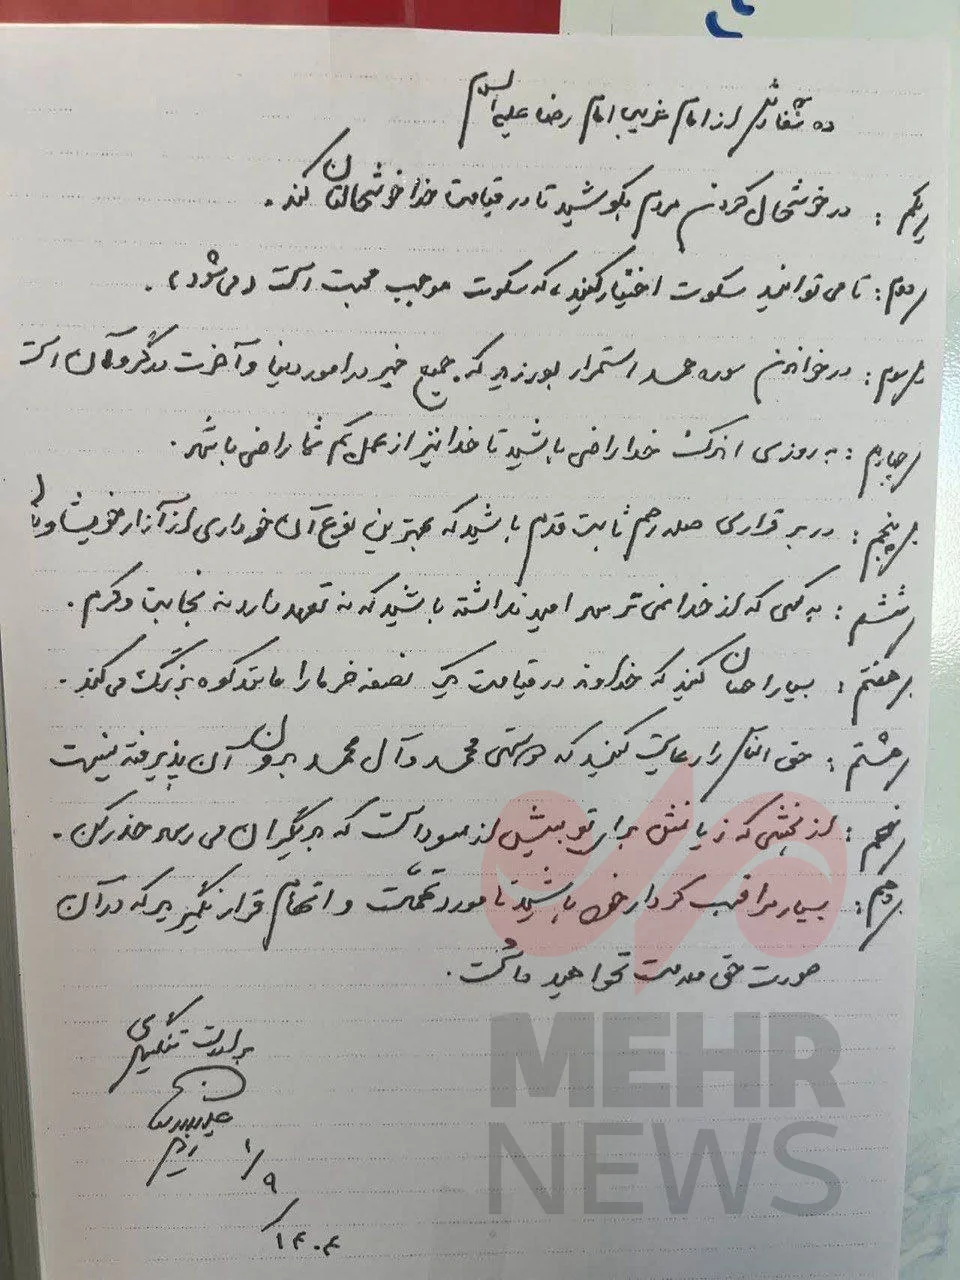 ده سفارش از امام غریب امام رضا علیه السلام
یکم: در خوشحال کردن مردم بکوشید تا در قیامت خدا خوشحالتان کند.
دوم: تا می توانید سکوت اختیار کنید، که سکوت موجب محبت است (می شود).
سوم: در خواندن سوره حمد استمرار بورزید که جمیع خیر در امور دنیا و آخرت در گرو آن است
چهارم: به روزی اندک خدا راضی باشید تا خدا نیز از عمل کم شما راضی باشد.
پنجم: در برقراری صله رحم ثابت قدم باشید که بهترین نوع آن خودداری از آزار خویشاوندان
ششم: به کسی که از خدا نمی ترسد امید نداشته باشید که نه تعهد دارد نه نجابت و کرم.
هفتم: بسیار احسان کنید که خداوند در قیامت یک نصفه خرما را مانند کوه بزرگ می کند.
هشتم: حق الناس را رعایت کنید که دوستی محمد و آل محمد بدون آن پذیرفته نیست
نهم: از بخششی که زیانش برای تو بیش از سود است که به دیگران می رسد حذر کن.
دهم: بسیار مراقب کردار خود باشید تا مورد تهمت و اتهام قرار نگیرید که در آن
صورت حق مذمت نخواهید داشت.
برادرت تنگسیری
۹/۱
۱۴۰۴
MEHR
NEWS